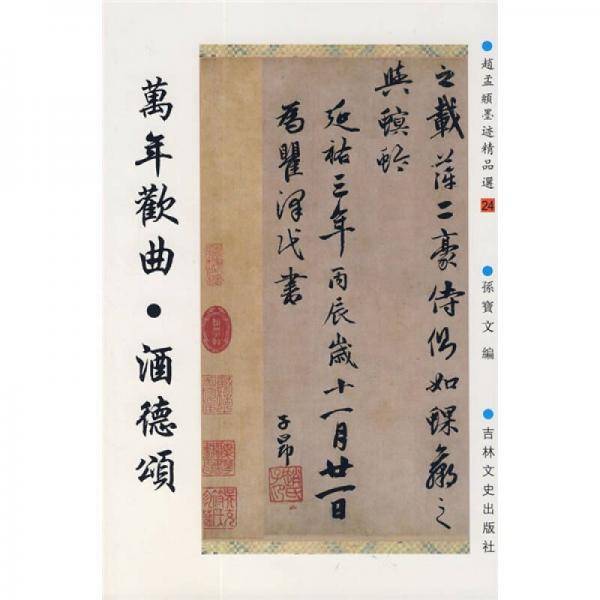 趙孟頫墨迹精品選 24
孫寶文 編
吉林文史出版社
之載萍二豪侍側如蜾蠃之
與螟蛉
延祐三年丙辰歲十一月廿一日
為瞿澤民書
子昂
趙氏子昂
萬年歡曲・酒德頌